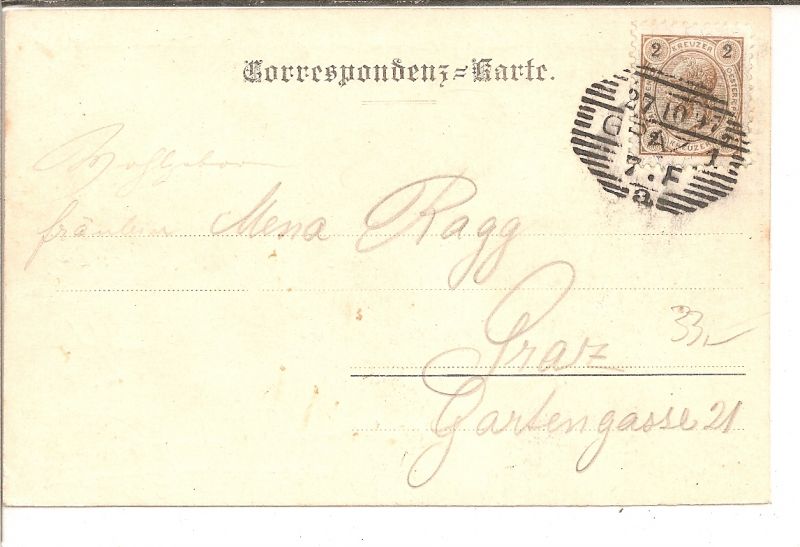 Correspondenz=Karte.
2 KREUZER 2
27 10 97
GRAZ 1
7.F
a
Wohlgeboren
fräulein Mena Ragg
Graz
33,-
Gartengasse 21